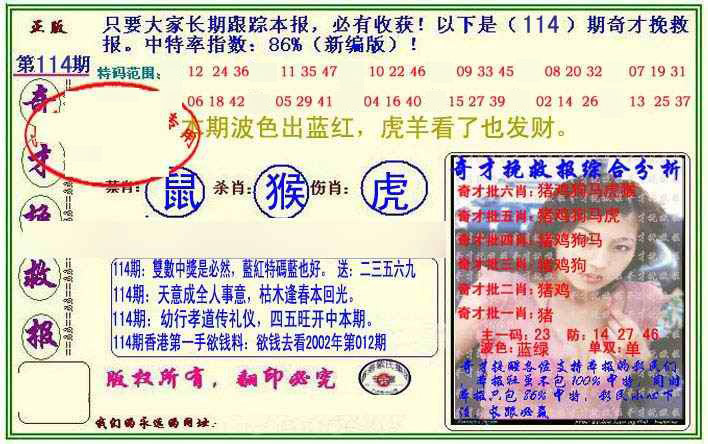 正版
只要大家长期跟踪本报，必有收获！以下是（114）期奇才挽救
报。中特率指数：86%（新编版）！
第114期
特码范围：
12 24 36 11 35 47 10 22 46 09 33 45 08 20 32 07 19 31
06 18 42 05 29 41 04 16 40 15 27 39 02 14 26 13 25 37
本期波色出蓝红，虎羊看了也发财。
奇
才
救
报
专用
禁肖：鼠 杀肖：猴 伤肖：虎
114期：雙數中獎是必然，藍紅特碼藍也好。 送：二三五六九
114期：天意成全人事意，枯木逢春本回光。
114期：幼行孝道传礼仪，四五旺开中本期。
114期香港第一手欲钱料：欲钱去看2002年第012期
版权所有，翻印必究
我们的永远的网址：
奇才挽救报综合分析
奇才批六肖：猪鸡狗马虎猴
奇才批五肖：猪鸡狗马虎
奇才批四肖：猪鸡狗马
奇才批三肖：猪鸡狗
奇才批二肖：猪鸡
奇才批一肖：猪
主一码：23 防：14 27 46
波色：蓝绿 单双：单
奇才挽救各位支持本报的彩民们
本报担虽不包100%中特，同时
本报只包86%中特，彩民小心下
注，长跟必赢